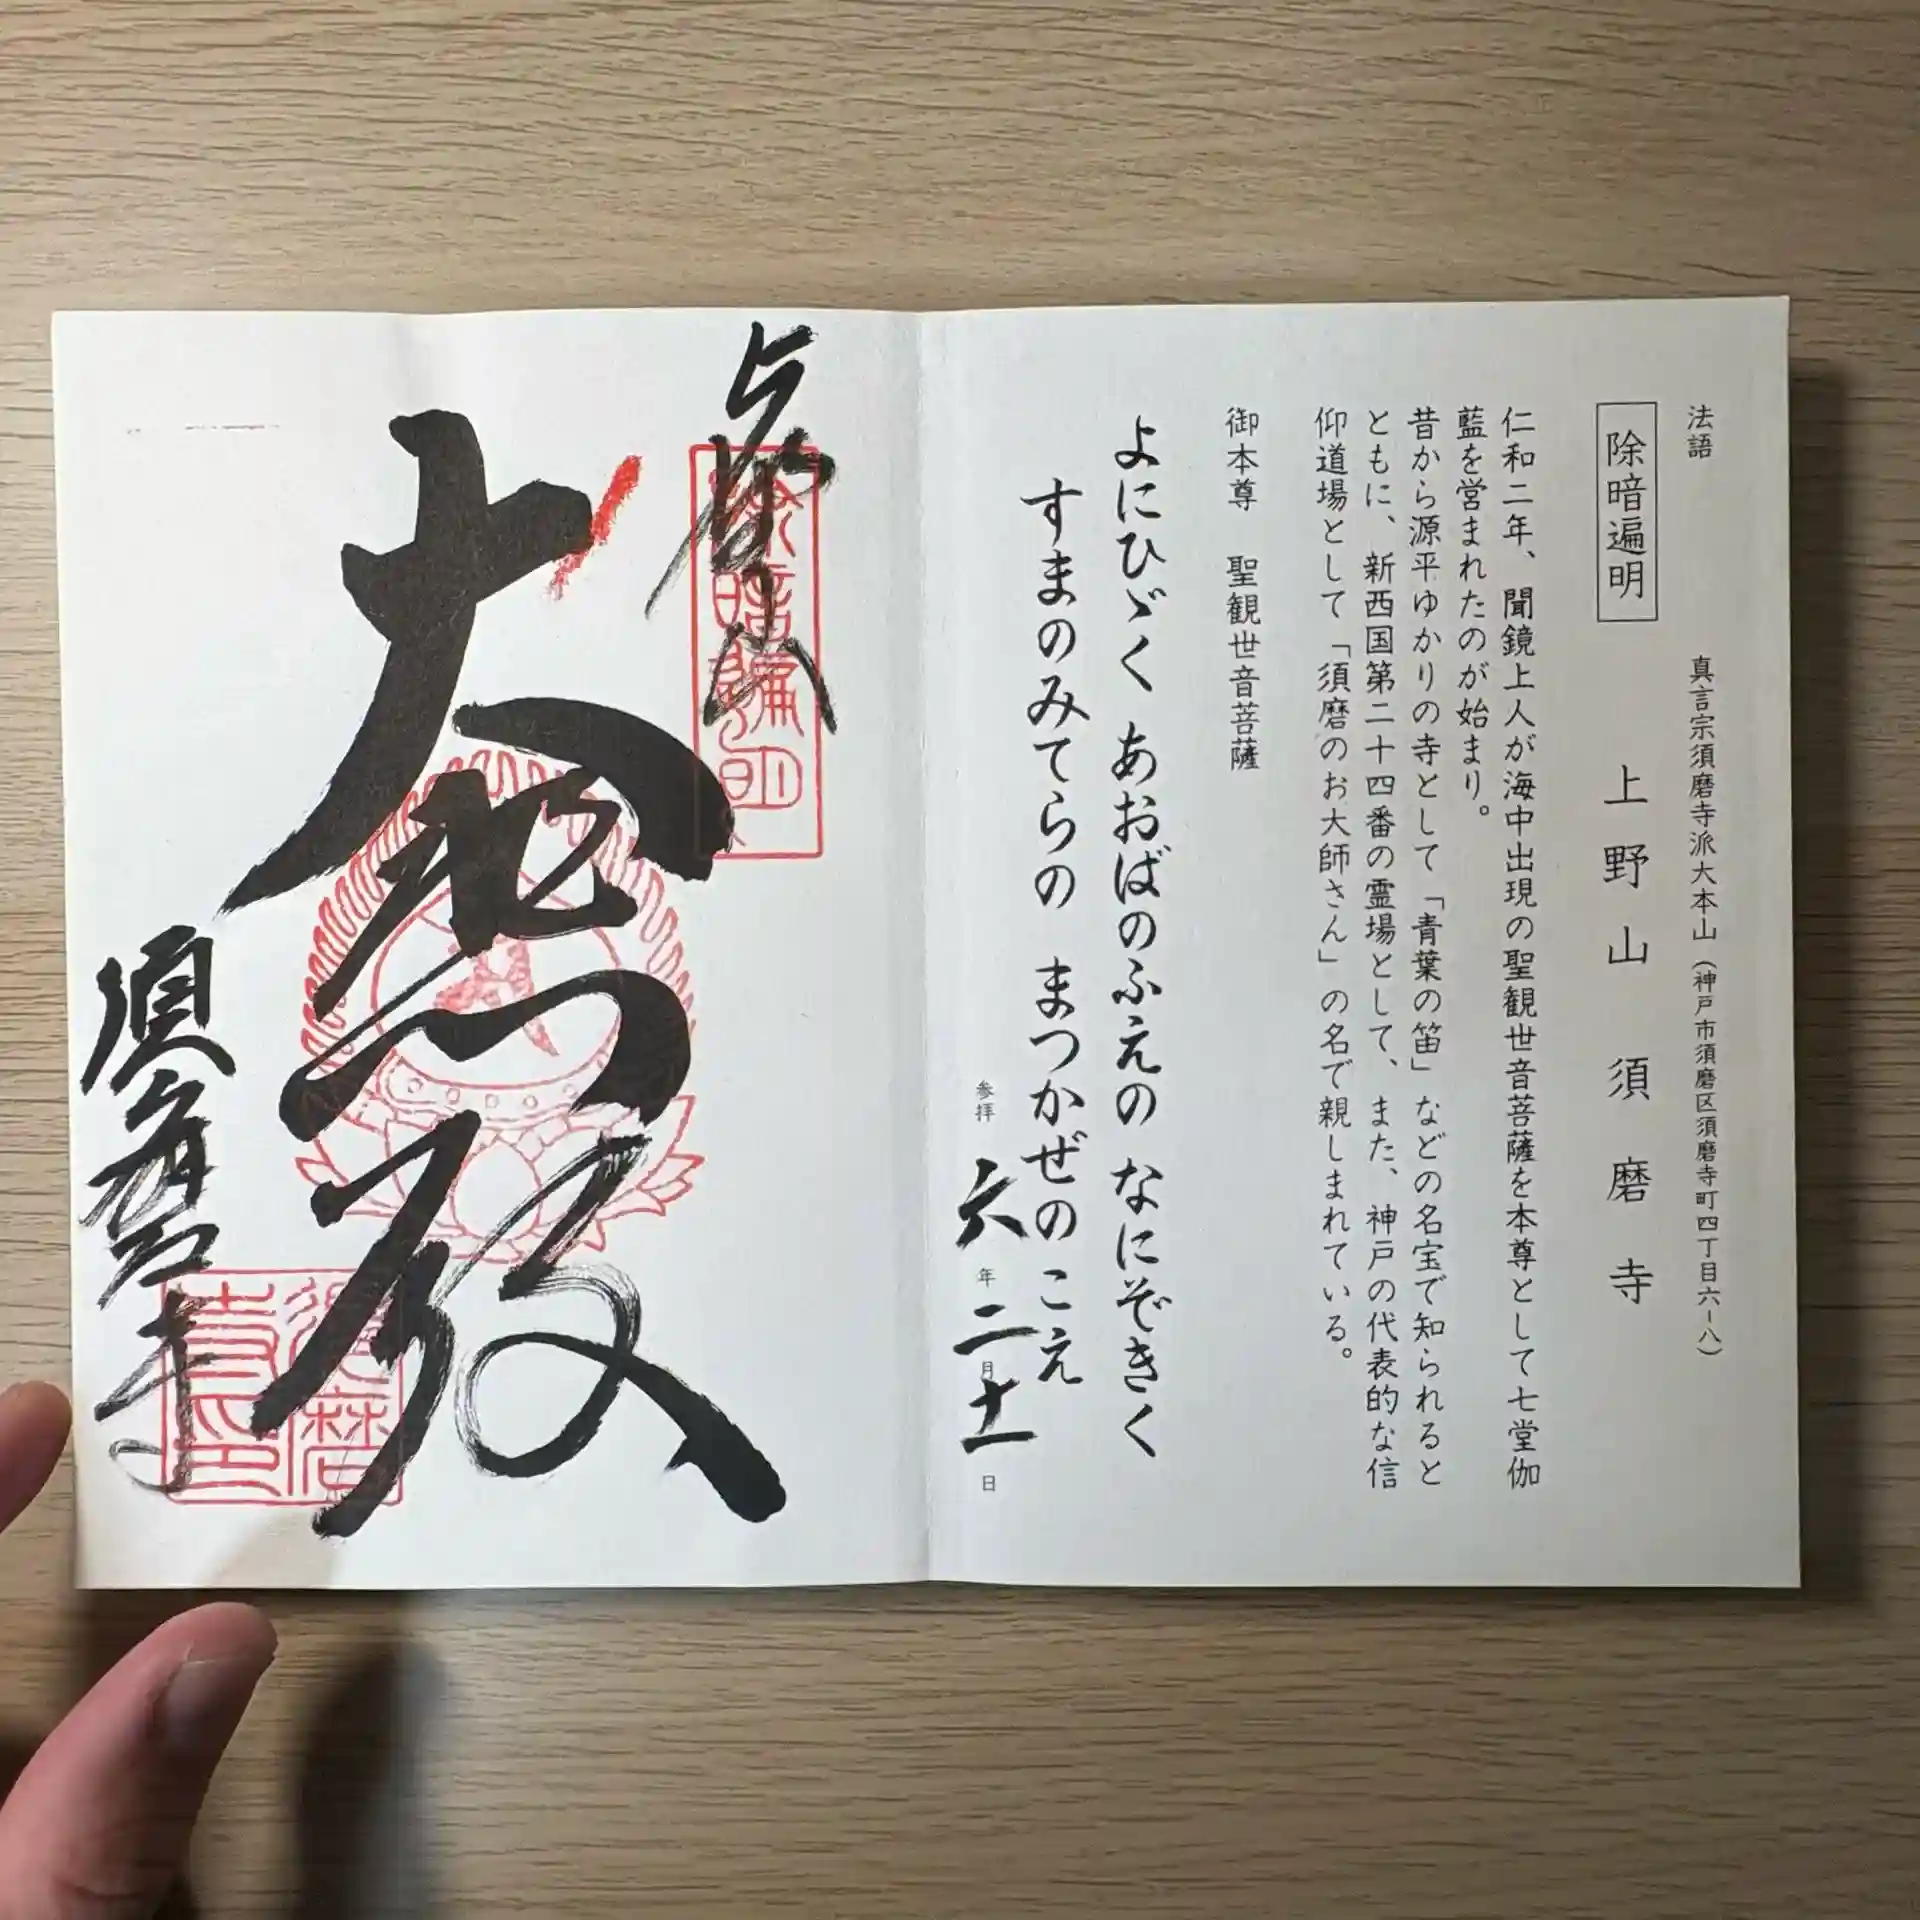 法語
真言宗須磨寺派大本山(神戸市須磨区須磨寺町四丁目六-八)
除暗遍明
上野山 須磨寺
仁和二年、聞鏡上人が海中出現の聖観世音菩薩を本尊として七堂伽
藍を営まれたのが始まり。
昔から源平ゆかりの寺として「青葉の笛」などの名宝で知られると
ともに、新西国第二十四番の霊場として、また、神戸の代表的な信
仰道場として「須磨のお大師さん」の名で親しまれている。
御本尊 聖観世音菩薩
よにひゞく あおばのふえの なにぞきく
すまのみてらの まつかぜのこえ
参拝 六年二月十一日
除暗遍明
大悲殿
須磨寺
須磨寺印